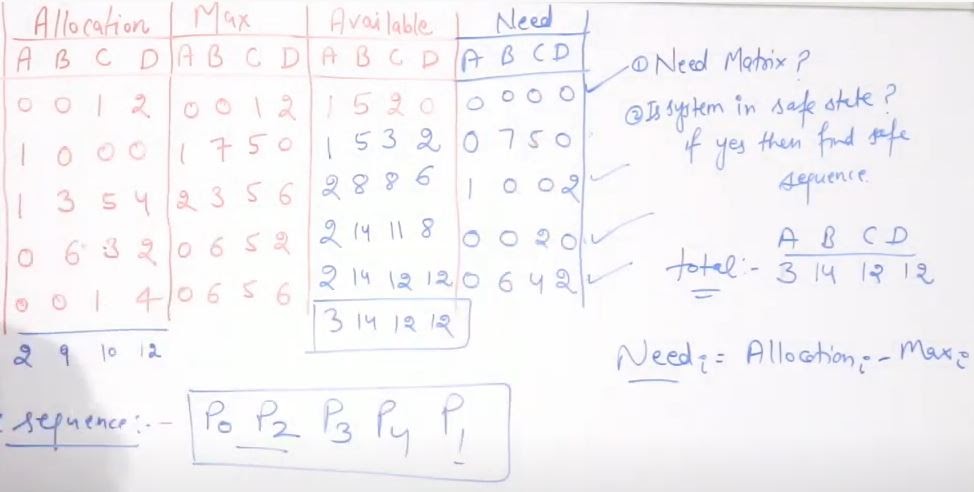 Allocation Max Available Need
A B C D A B C D A B C D A B C D
0 0 1 2 0 0 1 2 1 5 2 0 0 0 0 0
1 0 0 0 1 7 5 0 1 5 3 2 0 7 5 0
1 3 5 4 2 3 5 6 2 8 8 6 1 0 0 2
0 6 3 2 0 6 5 2 2 14 11 8 0 0 2 0
0 0 1 4 0 6 5 6 2 14 12 12 0 6 4 2
3 14 12 12
2 9 10 12
① Need Matrix?
② Is system in safe state?
if yes then find safe
sequence.
A B C D
total:- 3 14 12 12
Needi = Allocationi - Maxi
sequence:- P0 P2 P3 P4 P1